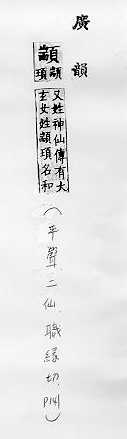 廣韻
顓
顓
頊
又姓神仙傳有大
玄女姓顓頊名和
(平聲、二仙、職緣切、P.141)